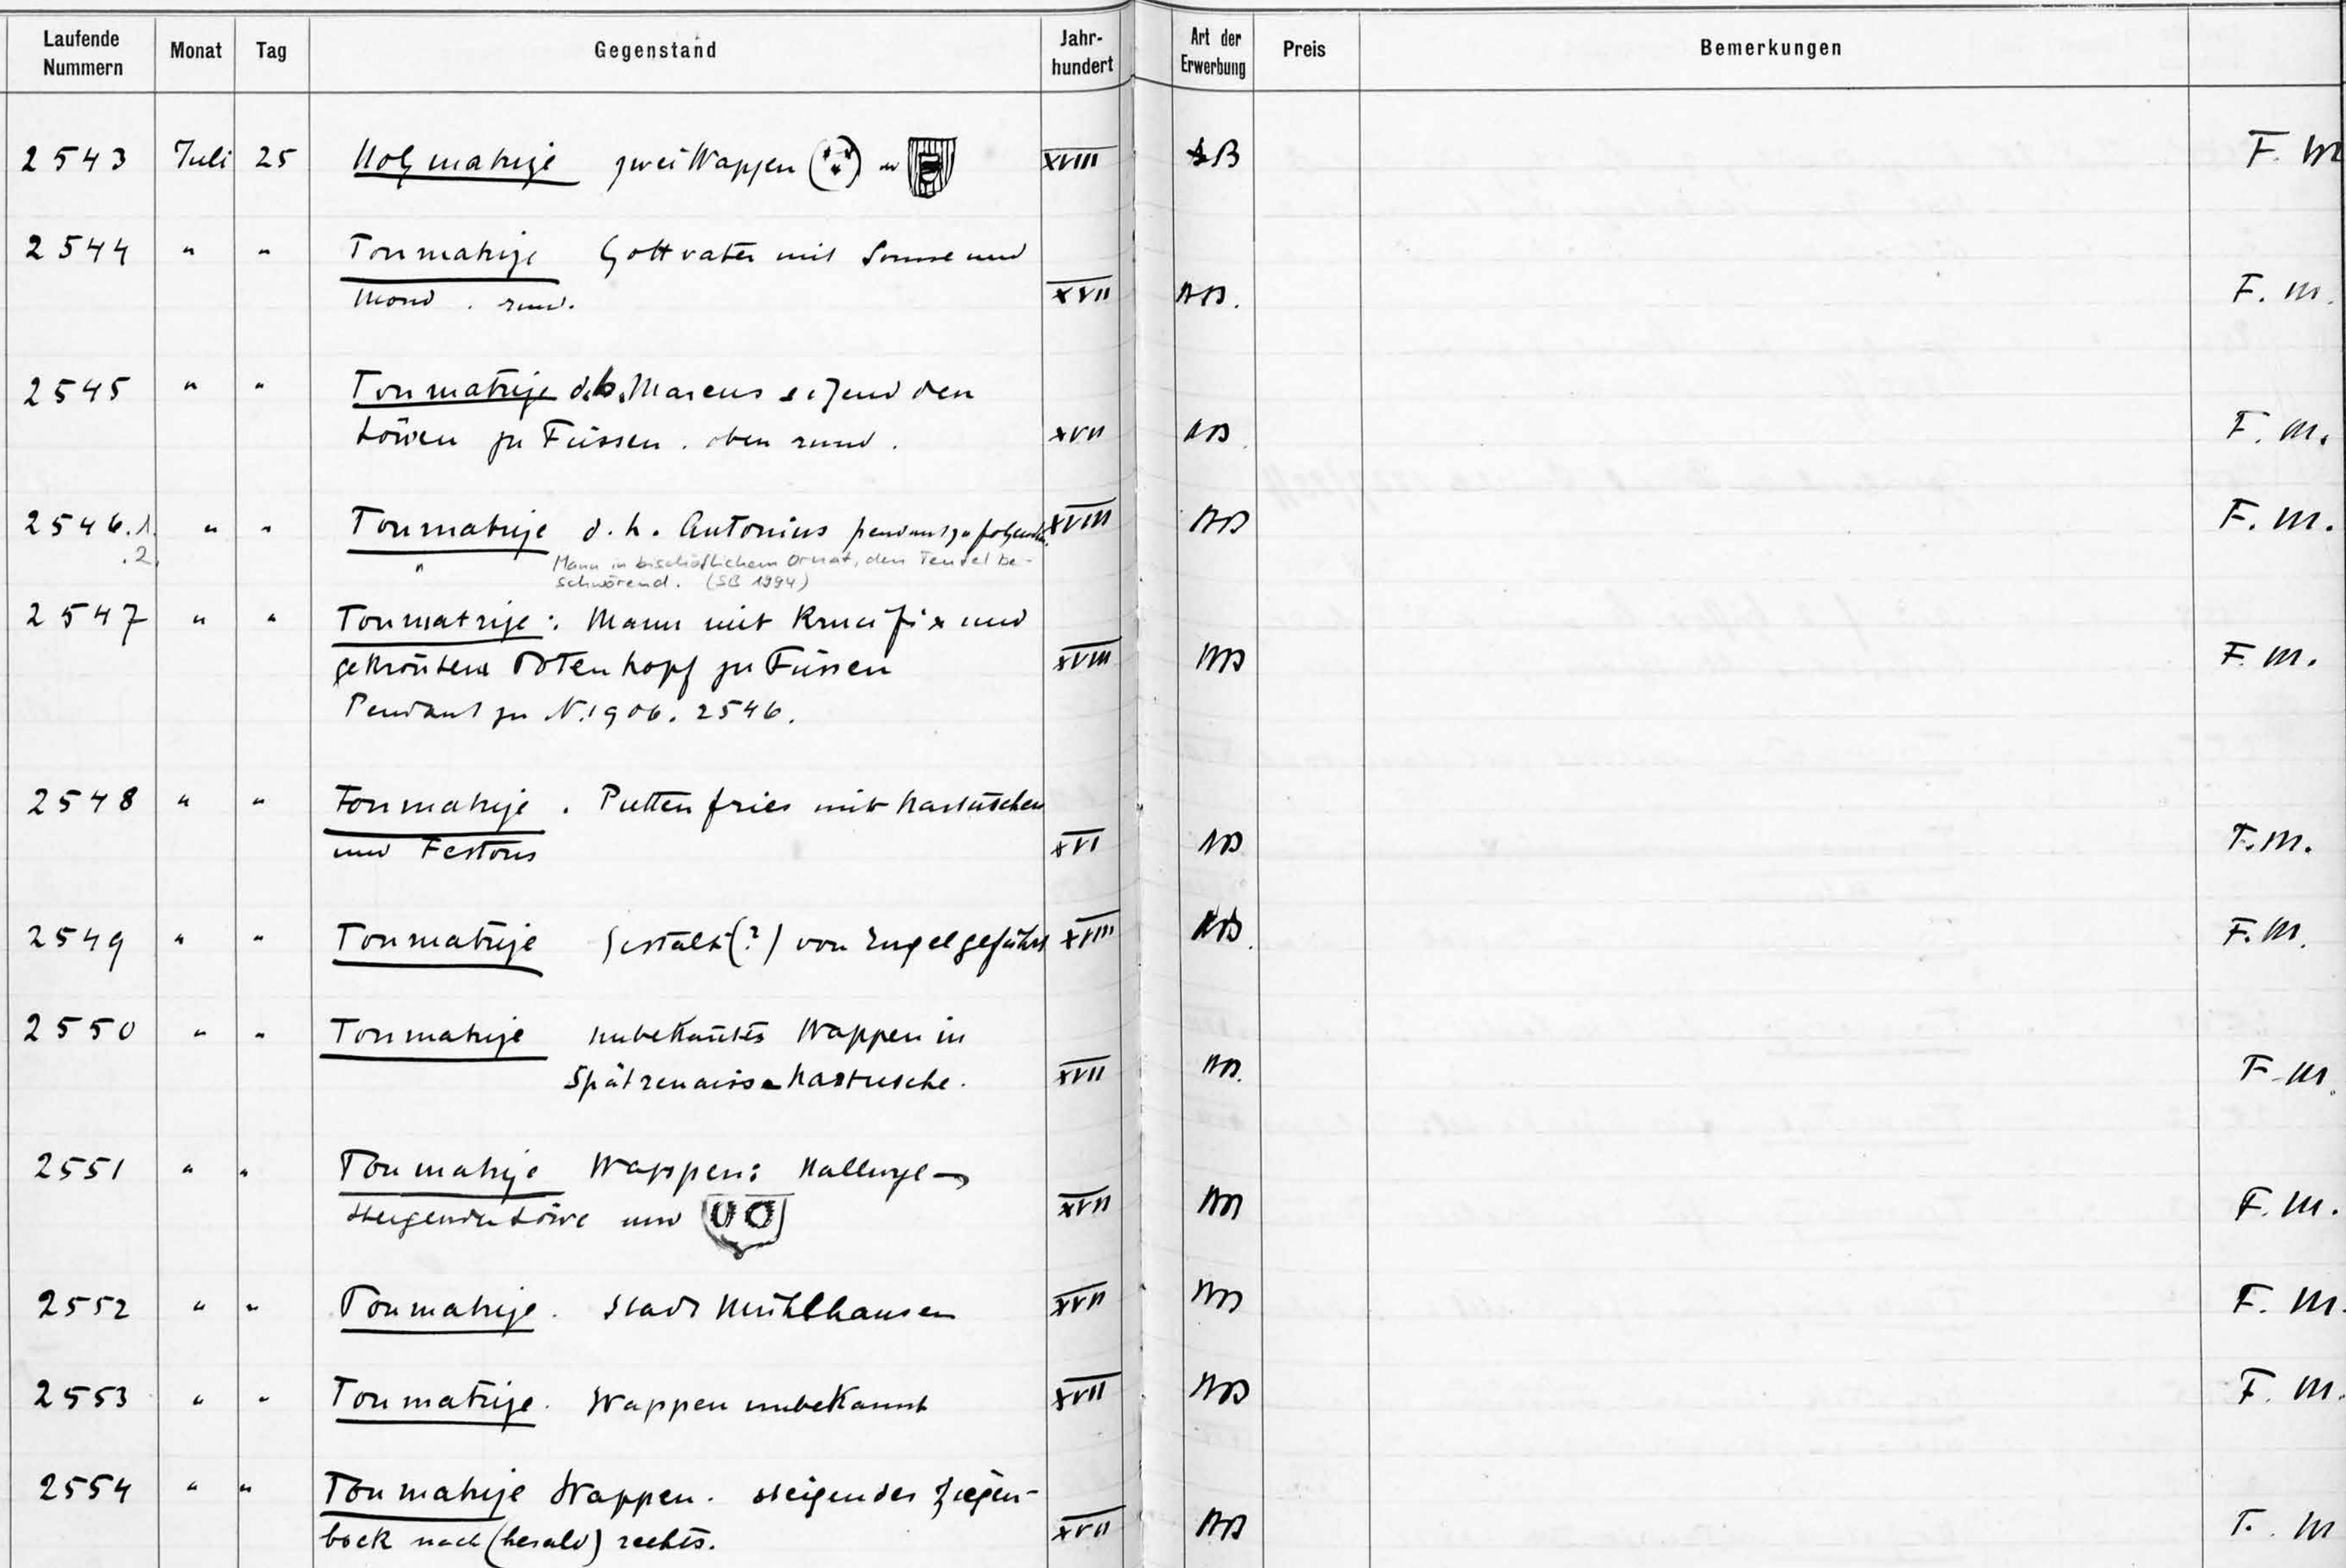 Laufende Nummern Monat Tag Gegenstand Jahr-hundert Art der Erwerbung Preis Bemerkungen
2543 Juli 25 Holzmatrize zwei Wappen XVIII B F. M
2544 " " Tonmatrize Gottvater mit Sonne und
Mond . rund. XVII AB. F. M.
2545 " " Tonmatrize d.h. Marcus sitzend den
Löwen zu Füssen . oben rund . XVII AB. F. M.
2546.1. " " Tonmatrize d. h. Antonius pendant zu folgendem. XVIII AB F. M.
.2. " Mann in bischöflichem Ornat, den Teufel be-
schwörend. (SB 1994)
2547 " " Tonmatrize : Mann mit Krucifix und
gekröntem Totenkopf zu Füssen XVIII AB F. M.
Pendant zu N. 1906. 2546.
2548 " " Tonmatrize . Puttenfries mit Kartuschen
und Festons XVI AB F. M.
2549 " " Tonmatrize Gestalt (?) von Engel geführt XVIII AB. F. M.
2550 " " Tonmatrize unbekanntes Wappen in
Spätrenaiss Kartusche. XVII AB. F. M.
2551 " " Tonmatrize Wappen:
steigender Löwe und XVII AB F. M.
2552 " " Tonmatrize . Stadt Mühlhausen XVII AB F. M.
2553 " " Tonmatrize . Wappen unbekannt XVII AB F. M.
2554 " " Tonmatrize Wappen . steigender Ziegen-
bock nach (herald) rechts. XVII AB F. M